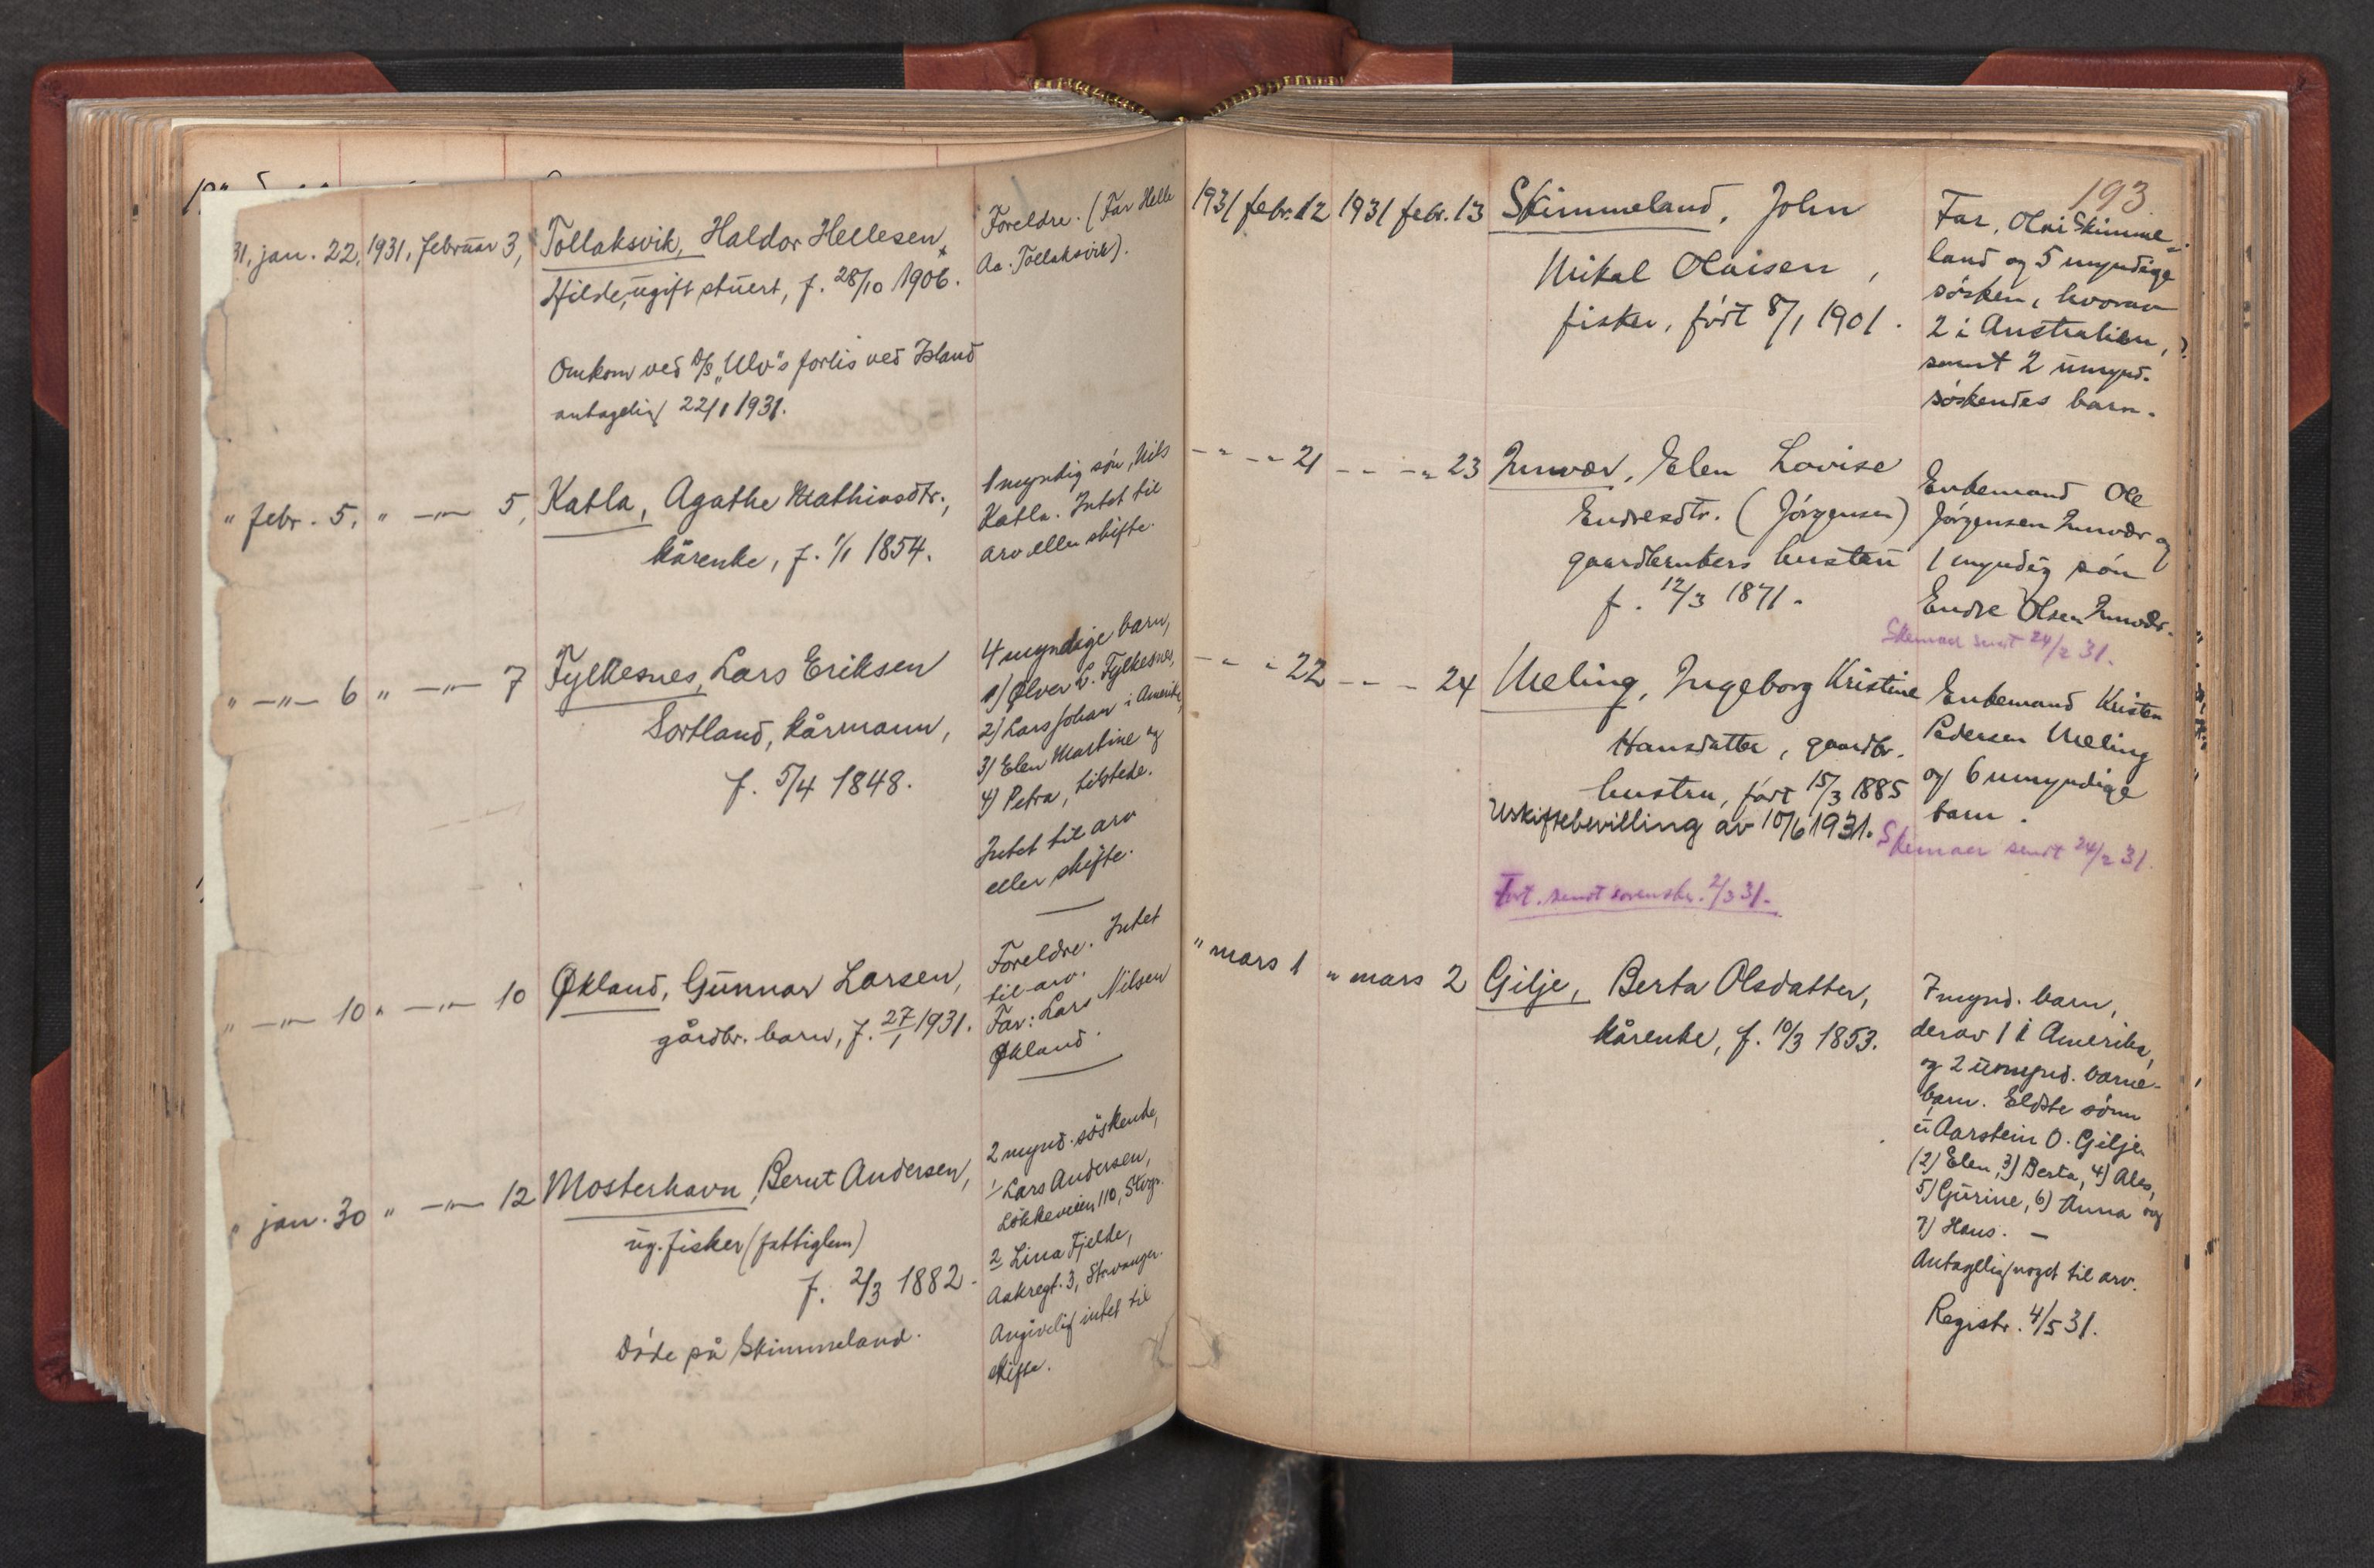 31, jan. 22, 1931, februar 3, Tollaksvik, Haldor Hellesen
Hilde, ugift stuert, f. 28/10 1906.
Foreldre. (Far Helle
Aa. Tollaksvik).
Omkom ved D/S „Ulv"s forlis ved Island
antagelig 22/1 1931.
" febr. 5, " -"- 5, Katla, Agathe Mathiasdtr.,
kårenke, f. 1/1 1854.
1 myndig søn, Nils
Katla. Intet til
arv eller skifte.
" -"- 6 " -"- 7 Fylkesnes, Lars Eriksen
Sortland, kårmann,
f. 5/4 1848.
4 myndige barn,
1) Ølver L. Fylkesnes,
2) Lars Johan i Amerika,
3) Elen Martine og
4) Petra, tilstede.
Intet til arv
eller skifte.
" -"- 10 " -"- 10 Økland, Gunnar Larsen,
gårdbr. barn, f. 27/1 1931.
Foreldre. Intet
til arv.
Far: Lars Nilsen
Økland.
" jan. 30 " -"- 12 Mosterhavn, Bernt Andersen,
ug. fisker (fattiglem)
f. 2/3 1882.
Døde på Skimmeland.
2 mynd. søskende,
1 Lars Andersen,
Løkkeveien 110, Stvgr.
2 Lina Fjelde,
Aakregt. 3, Stavanger.
Angivelig intet til
skifte.
193
1931 febr. 12 1931 febr. 13 Skimmeland, John
Mikal Olaisen,
fisker, født 8/1 1901.
Far, Olai Skimme-
land og 5 myndige
søsken, hvorav
2 i Australien,
samt 2 umynd.
søskendes barn.
- " - " 21 - - - " 23 Innvær, Elen Lovise
Endresdtr. (Jørgensen)
gaardbrukers hustru
f. 12/3 1871.
Enkemand Ole
Jørgensen Innvær og
1 myndig søn
Endre Olsen Innvær.
Skemaer sendt 24/2 31.
- " " 22 - - - 24 Meling, Ingeborg Kristine
Hansdatter, gaardbr.
hustru, født 15/3 1885
Uskiftebevilling av 10/6 1931.
Enkemand Kristen
Pedersen Meling
og 6 umyndige
barn.
Skemaer sendt 24/2 31.
Fort. sendt sorenskr. 2/3 31.
" mars 1 " mars 2 Gilje, Berta Olsdatter,
kårenke, f. 10/3 1853.
7 mynd. barn,
derav 1 i Amerika,
og 2 umynd. barne-
barn. Eldste sønn
Aarstein O. Gilje
(2) Elen, 3) Berta, 4) Ales,
5) Gurine, 6) Anna og
7) Hans. -
Antagelig noget til arv.
Registr. 4/5 31.